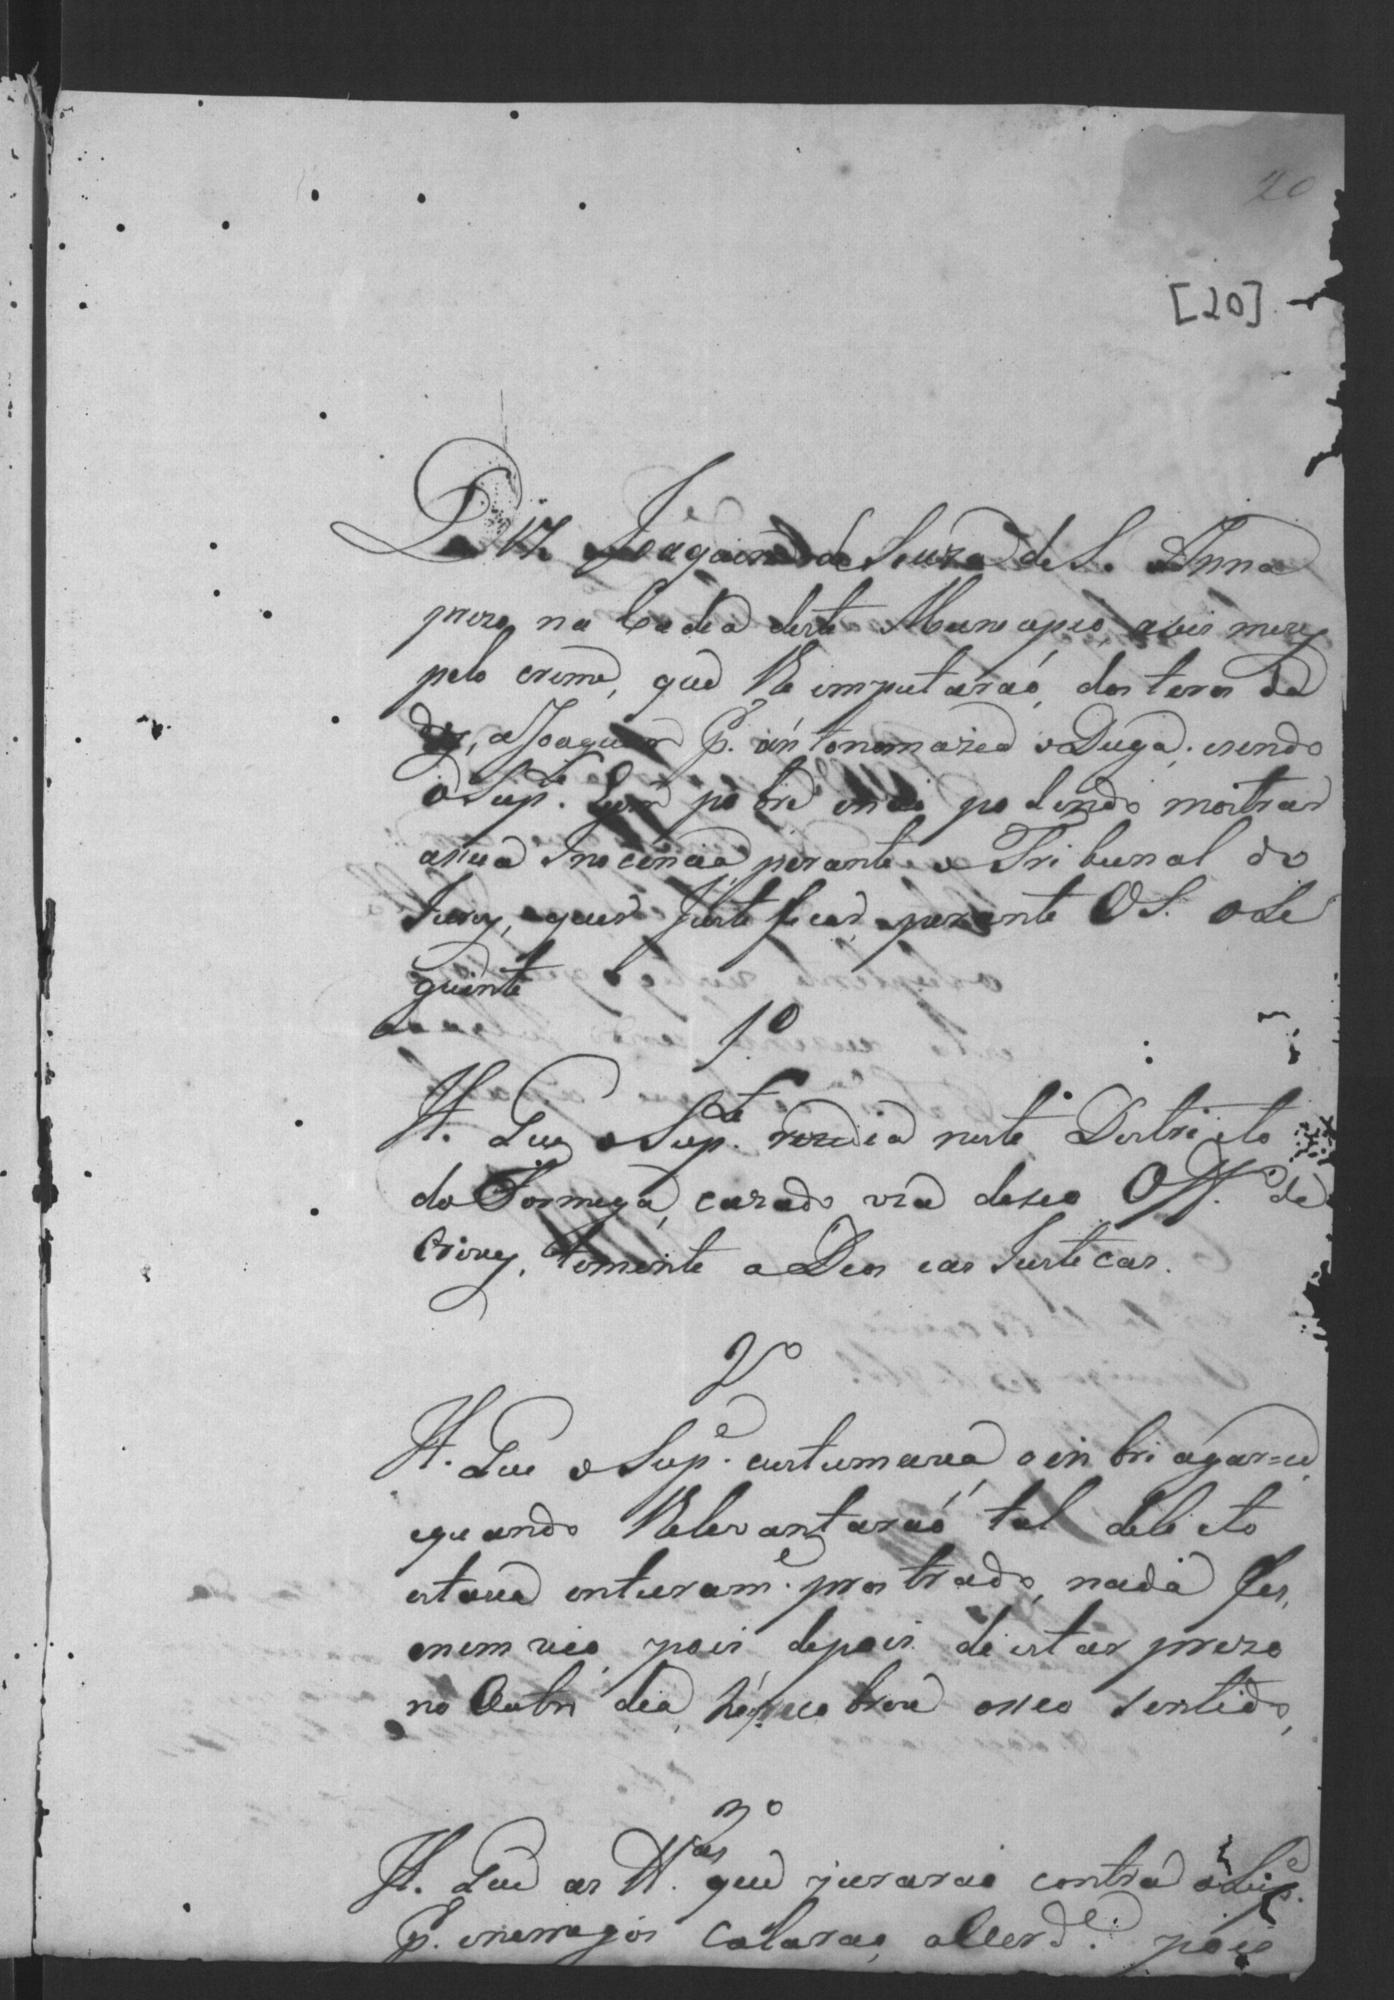 20
[20]
Diz Joaquim de Souza de S. Anna
prezo na Cadea deste Municipio a seis mezes
pelo crime, que lhe imputaraó, dos teros da
dos, a Joaquim P. ántonomazia o Duga, esendo
o Supte. pobre enaó podendo mostrar
asua Inocencia, perante o Tribunal do
Jury, quer Justeficar perante O S. o Se
guinte
1º
H. Que o Supte. rezedia neste Destricto
do Formiga, cazado via deseo Off.º de
Crivey, temente a Deos eas Justicas.
2º
H. Que o Supe. custumava, o inbriágar=ce,
equando lhe levantaraó tal delicto
estava enteirame. prostrado, nada fes,
enem vio, pois depois de estar prezo
no Outro dia, recobrou oseo Sentido,
3º
H. Que as ttas. que juraraó contra o Supe.
P. enemigos calarao, a Verde. pois